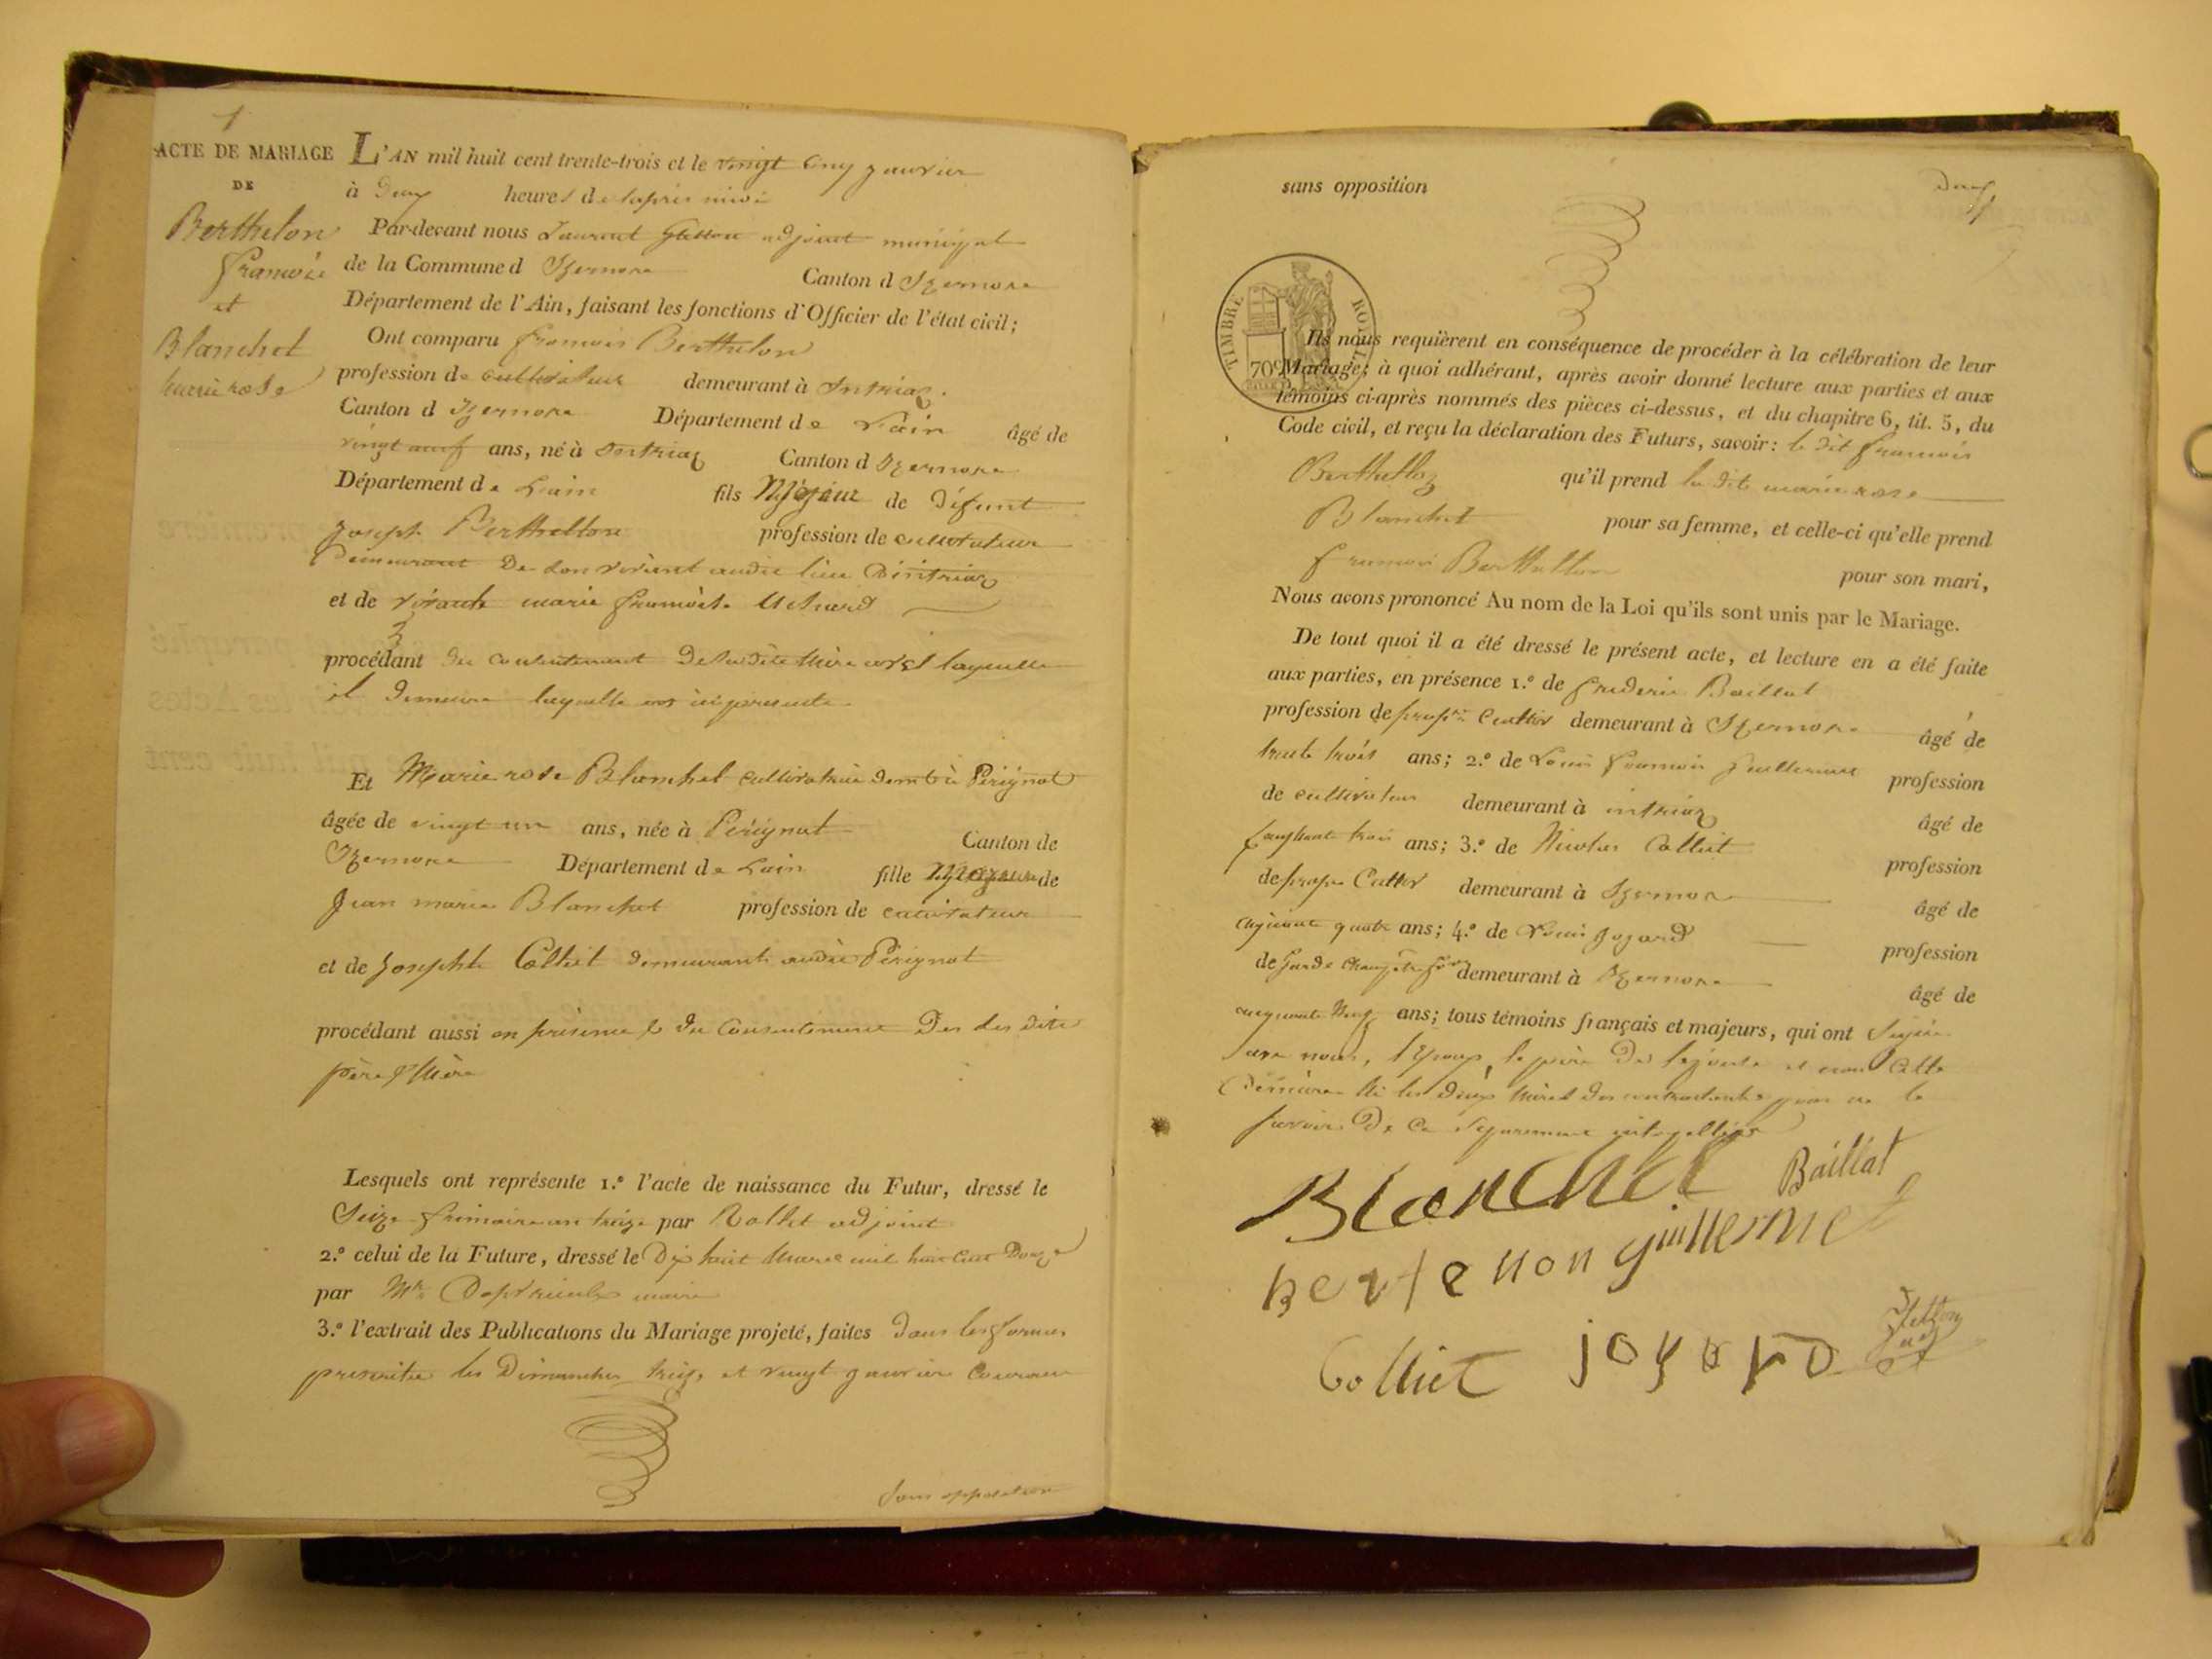 1
ACTE DE MARIAGE
DE
Berthelon
françois
et
Blanchet
marie rose
L'AN mil huit cent trente-trois et le vingt cinq janvier
à deux heures de laprès midi
Par-devant nous Laurent adjoint municipal
de la Commune d Izernore Canton d Izernore
Département de l'Ain, faisant les fonctions d'Officier de l'état civil;
Ont comparu françois Berthelon
profession de cultivateur demeurant à Intriaz.
Canton d Izernore Département de L'ain âgé de
vingt neuf ans, né à Intriaz Canton d Izernore
Département de Lain fils Majeur de défunt
Joseph Berthellon profession de cultivateur
demeurant de son vivant audit lieu d'intriaz
et de vivante marie françoise
procédant du contentement de la dite mère avec laquelle
il demeure laquelle est ici présente
Et Marie rose Blanchet cultivatrice demte à Pérignat
âgée de vingt un ans, née à Pérignat Canton de
Izernore Département de Lain fille Majeure de
Jean marie Blanchet profession de cultivateur
et de Josephte Colliet demeurants audit Pérignat
procédant aussi en présence & du consentement des dits
père & Mère
Lesquels ont représenté 1.º l'acte de naissance du Futur, dressé le
Seize frimaire an treize par Rollet adjoint
2.º celui de la Future, dressé le dix huit Mars mil huit cent douze
par Mr maire
3.º l'extrait des Publications du Mariage projeté, faites dans les formes
prescrites les Dimanches treize et vingt janvier courant
Sans opposition
sans opposition
deux
TIMBRE ROYAL
70c
Ils nous requièrent en conséquence de procéder à la célébration de leur
Mariage; à quoi adhérant, après avoir donné lecture aux parties et aux
témoins ci-après nommés des pièces ci-dessus, et du chapitre 6, tit. 5, du
Code civil, et reçu la déclaration des Futurs, savoir: le dit françois
qu'il prend la dite marie rose
Blanchet pour sa femme, et celle-ci qu'elle prend
françois Berthellon pour son mari,
Nous avons prononcé Au nom de la Loi qu'ils sont unis par le Mariage.
De tout quoi il a été dressé le présent acte, et lecture en a été faite
aux parties, en présence 1.º de frederic Baillat
profession de propre Cultivr demeurant à Izernore âgé de
trente trois ans; 2.º de Louis françois guillermet profession
de cultivateur demeurant à intriaz âgé de
trois ans; 3.º de Nicolas Colliet profession
de propre Cultivr demeurant à Izernore âgé de
cinquante quatre ans; 4.º de Louis Joyard profession
de Garde Champêtre demeurant à Izernore âgé de
cinquante Neuf ans; tous témoins français et majeurs, qui ont signé
avec nous, l'Epoux, le père de l'épouse et non Cette
dernière Ni les deux Mères des contractants pour ne le
savoir De ce séparement interpellées
Blanchet Baillat
bertelion guillermet
Colliet joyard